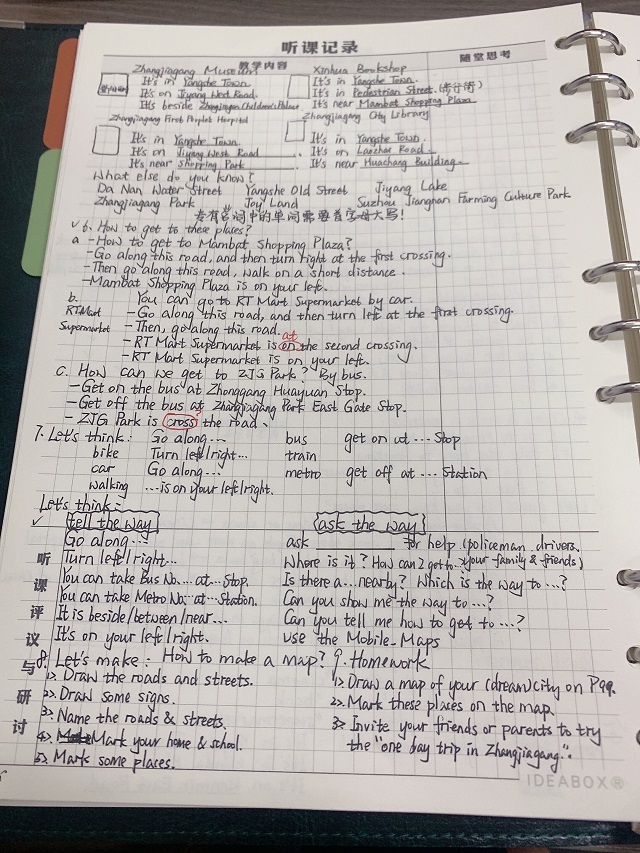 听课记录
教学内容
随堂思考
Zhangjiagang Museum
It's in Yangshe Town.
It's on Jiyang West Road.
It's beside Zhangjiagang Children's Palace.
Xinhua Bookshop
It's in Yangshe Town.
It's in Pedestrian Street. (步行街)
It's near Mambat Shopping Plaza
Zhangjiagang First People's Hospital
It's in Yangshe Town
It's on Jiyang West Road.
It's near Shopping Park.
Zhangjiagang City Library
It's in Yangshe Town.
It's on Laozhar Road.
It's near Huachang Building.
What else do you know?
Da Nan Water Street Yangshe Old Street Jiyang Lake
Zhangjiagang Park Joy Land Suzhou Jiangnan Farming Culture Park
专有名词中的单词需要首字母大写!
√ 6. How to get to these places?
a - How to get to Mambat Shopping Plaza?
- Go along this road, and then turn right at the first crossing.
- Then go along this road, walk on a short distance.
- Mambat Shopping Plaza is on your left.
b. You can go to RT Mart Supermarket by car.
RT Mart Supermarket
- Go along this road, and then turn left at the first crossing.
- Then, go along this road.
at
- RT Mart Supermarket is on the second crossing.
- RT Mart Supermarket is on your left.
C. How can we get to ZJG Park? By bus.
- Get on the bus at Zhonggang Huayuan Stop.
- Get off the bus at Zhangjiagang Park East Gate Stop.
- ZJG Park is cross the road.
7. Let's think: Go along... bus get on at ... Stop
bike Turn left/right... train
car Go along... metro get off at ... Station
walking ...is on your left/right.
Let's think:
√ tell the way
Go along...
Turn left/right...
You can take Bus No. ...at...Stop.
You can take Metro No. at...Station.
It is beside/between/near...
It's on your left/right.
ask the way
ask ______ for help (policeman, drivers, your family & friends)
Where is it? How can I get to...?
Is there a... nearby? Which is the way to ...?
Can you show me the way to ...?
Can you tell me how to get to ...?
use the Mobile-Maps
听课评议与研讨
8. Let's make: How to make a map?
1> Draw the roads and streets.
2> Draw some signs.
3> Name the roads & streets.
4> Mark your home & school.
5> Mark some places.
9. Homework
1> Draw a map of your (dream) city on P99.
2> Mark these places on the map.
3> Invite your friends or parents to try
the "one bay trip in Zhangjiagang".
IDEABOX®